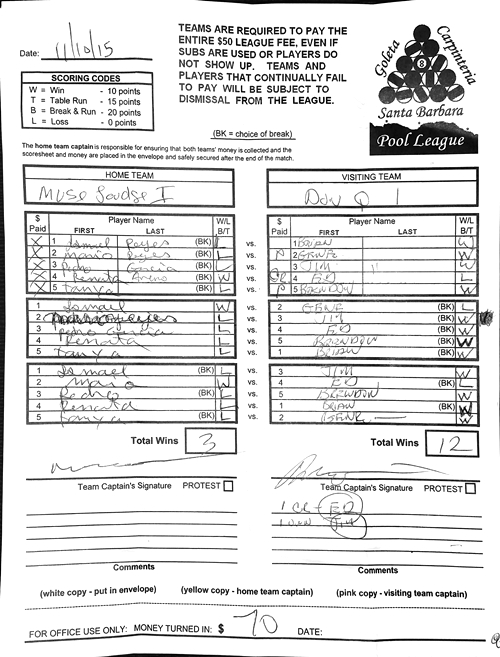 Date: 11/10/15
TEAMS ARE REQUIRED TO PAY THE
ENTIRE $50 LEAGUE FEE, EVEN IF
SUBS ARE USED OR PLAYERS DO
NOT SHOW UP. TEAMS AND
PLAYERS THAT CONTINUALLY FAIL
TO PAY WILL BE SUBJECT TO
DISMISSAL FROM THE LEAGUE.
Goleta Carpinteria
8
Santa Barbara
Pool League
SCORING CODES
W = Win - 10 points
T = Table Run - 15 points
B = Break & Run - 20 points
L = Loss - 0 points
(BK = choice of break)
The home team captain is responsible for ensuring that both teams' money is collected and the
scoresheet and money are placed in the envelope and safely secured after the end of the match.
HOME TEAM VISITING TEAM
I Don Q 1
$ Paid Player Name FIRST LAST W/L B/T $ Paid Player Name FIRST LAST W/L B/T
X 1 Ismael Reyes (BK) L vs. 1 BRIAN W
X 2 Mario Reyes (BK) L vs. P 2 GENE W
X 3 Pedro Garcia (BK) L vs. 3 JIM " W
X 4 Renata (BK) W vs. CR 4 ED L
X 5 Tanya (BK) L vs. P 5 BRENDON W
1 Ismael W vs. 2 GENE (BK) L
2 L vs. 3 JIM (BK) W
3 Pedro Garcia L vs. 4 ED (BK) W
4 Renata L vs. 5 BRENDON (BK) W
5 Tanya L vs. 1 BRIAN (BK) W
1 Ismael (BK) L vs. 3 JIM W
2 Mario W vs. 4 ED (BK) L
3 Pedro (BK) L vs. 5 BRENDON W
4 Renata L vs. 1 BRIAN (BK) W
5 Tanya (BK) L vs. 2 GENE W
Total Wins 3 Total Wins 12
Team Captain's Signature PROTEST Team Captain's Signature PROTEST
1 CR - ED
1 JIM
Comments Comments
(white copy - put in envelope) (yellow copy - home team captain) (pink copy - visiting team captain)
FOR OFFICE USE ONLY: MONEY TURNED IN: $ 70 DATE: